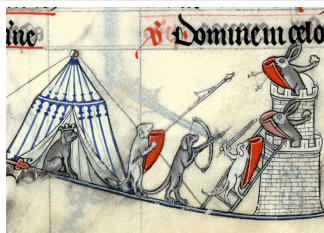 ine
Domine in celo